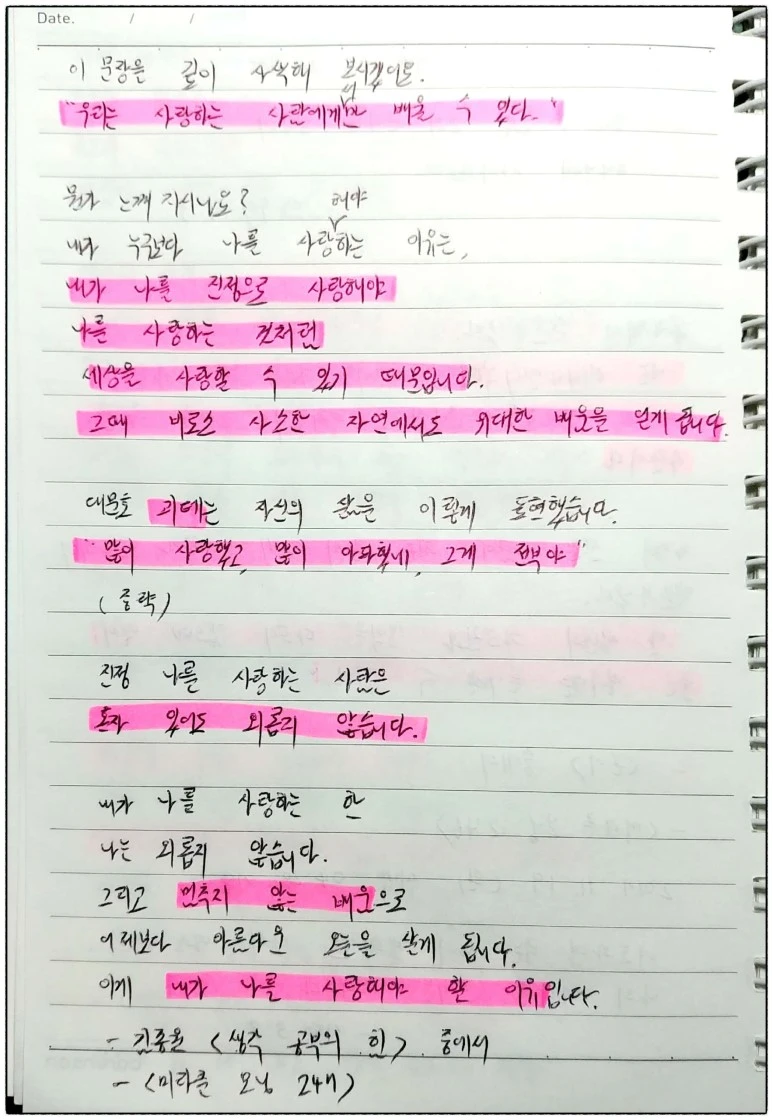 Date. / /
이 문장을 깊이 사색해 보시겠어요.
"우리는 사랑하는 사람에게서만 배울 수 있다."
뭔가 느껴 지시나요?
내가 누구보다 나를 사랑해야하는 이유는,
내가 나를 진정으로 사랑해야
나를 사랑하는 것처럼
세상을 사랑할 수 있기 때문입니다.
그때 비로소 사소한 자연에서도 위대한 배움을 얻게 됩니다.
대문호 괴테는 자신의 삶을 이렇게 표현했습니다.
"많이 사랑했고, 많이 아파했네, 그게 전부야"
(중략)
진정 나를 사랑하는 사람은
혼자 있어도 외롭지 않습니다.
내가 나를 사랑하는 한
나는 외롭지 않습니다.
그리고 멈추지 않는 배움으로
어제보다 아름다운 오늘을 살게 됩니다.
이게 내가 나를 사랑해야 할 이유입니다.
- 김종원 <생각 공부의 힘> 중에서
- <미라클 모닝 247>